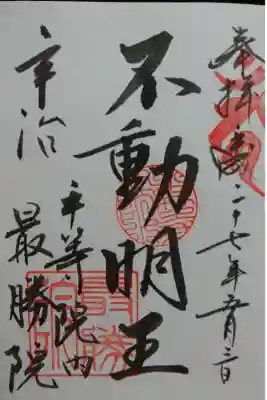 奉拝
二十七年五月三日
不動明王
宇治
平等院内
最勝院